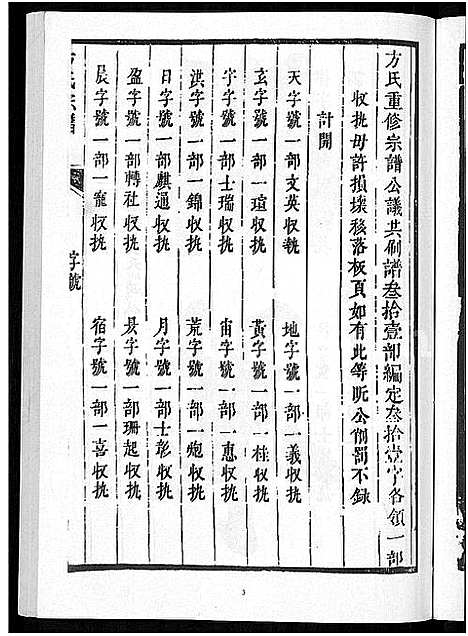 方氏重修宗譜公議共刷譜叁拾壹部編定叁拾壹字各領一部
收執毋許損壞移落板頁如有此等阮公削罰不錄
計開
天字號一部文英收執
地字號一部一義收執
玄字號一部一瑄收執
黃字號一部一桂收執
宇字號一部士瑞收執
宙字號一部一惠收執
洪字號一部一錦收執
荒字號一部一炮收執
日字號一部麒通收執
月字號一部士彰收執
盈字號一部轉社收執
昃字號一部珊起收執
辰字號一部一寵收執
宿字號一部一喜收執
方氏宗譜
字號
3